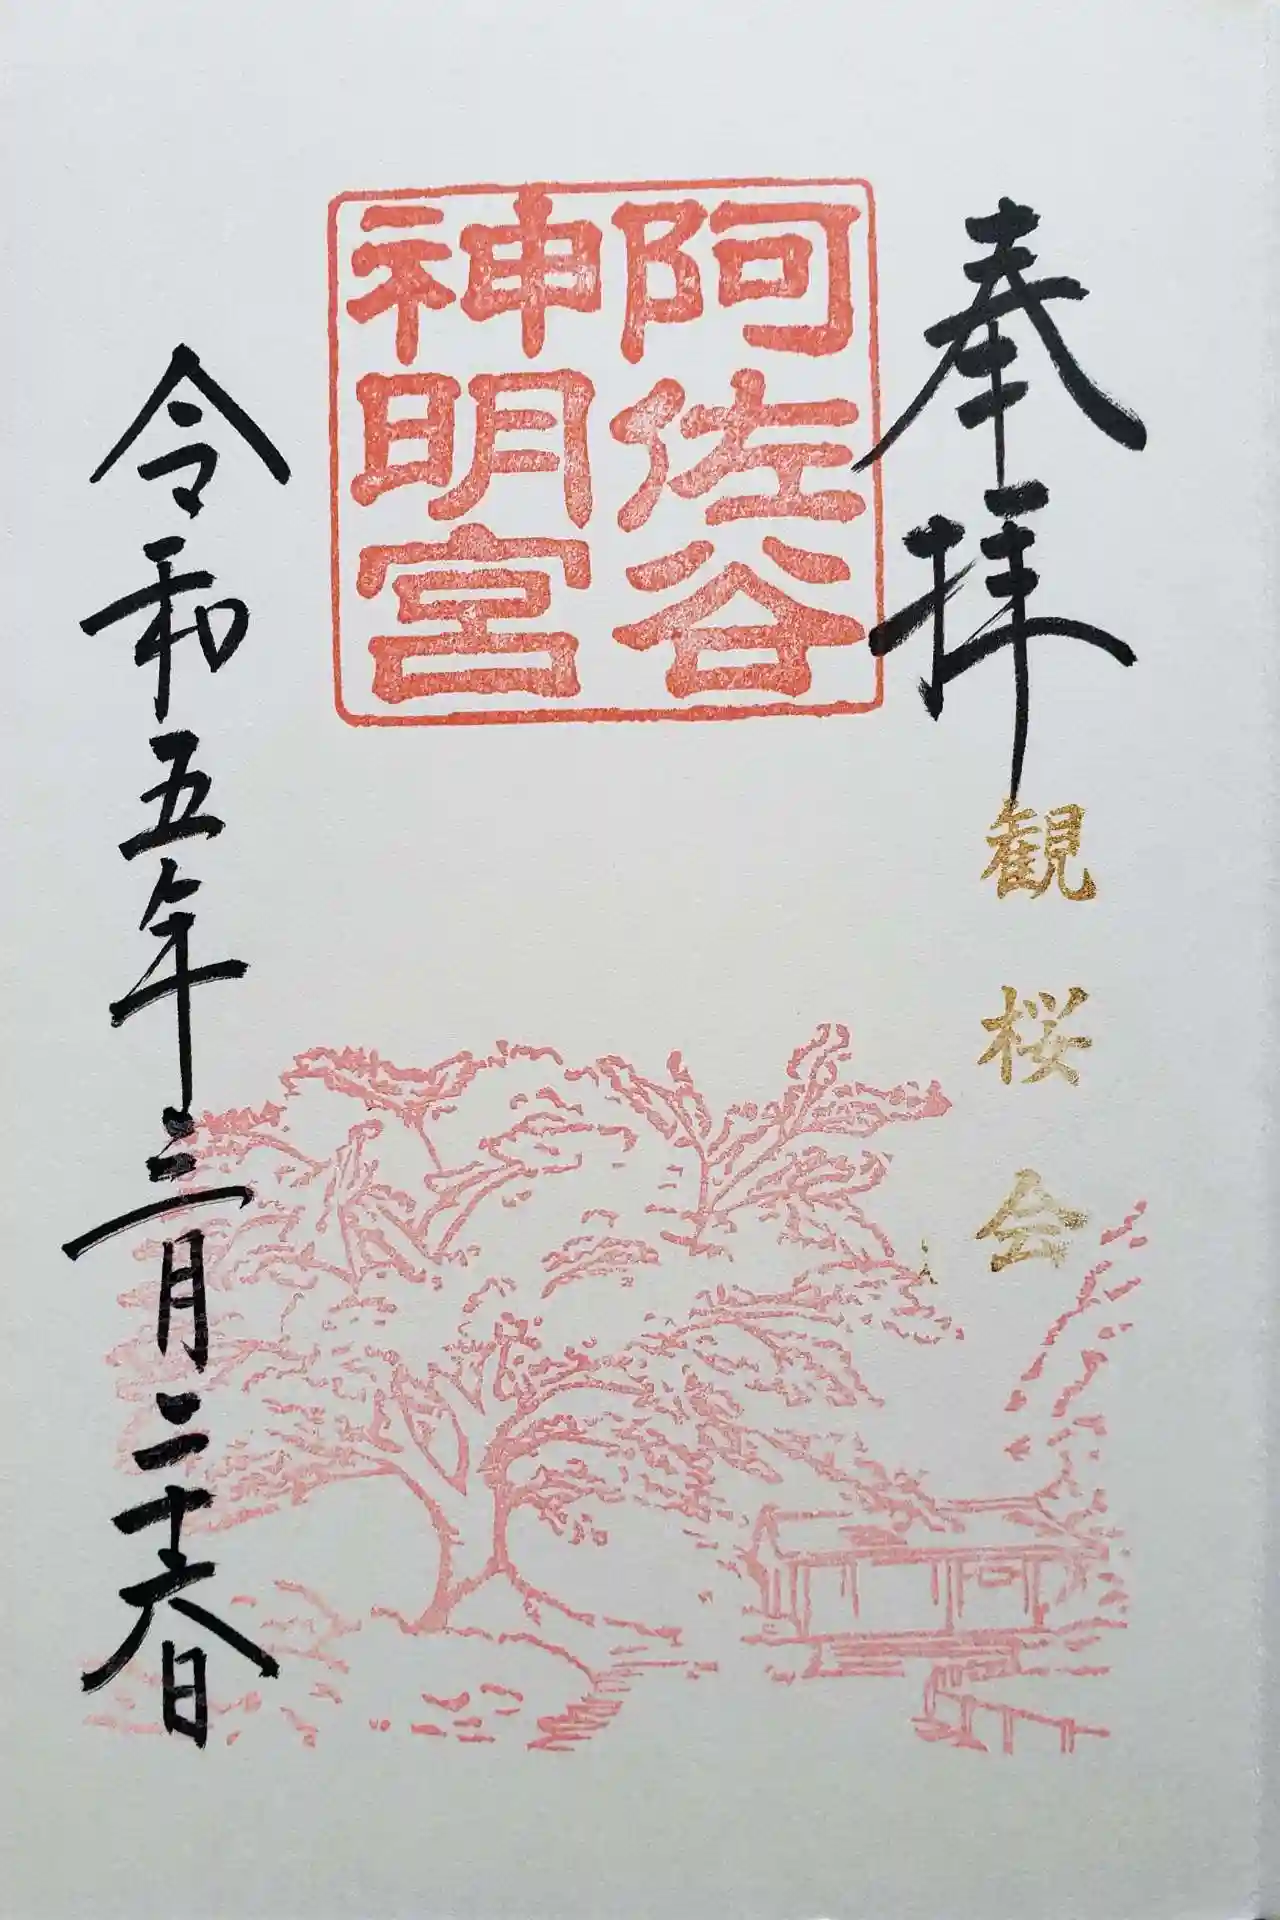 奉拝
観桜会
阿佐谷
神明宮
令和五年三月二十六日